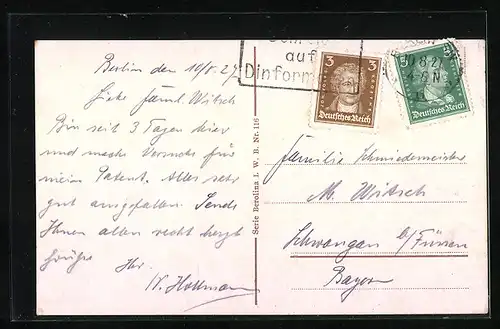 Berlin den 10/8.27
Liebe Famil. Witsch
Bin seit 3 Tagen hier
und mache Versuche für
mein Patent. Alles sehr
gut ausgefallen. Sende
Ihnen allen recht herzl
Grüße
Ihr
Serie Berolina I. W. B. Nr. 116
auf
Dinform
3
3
Deutsches Reich
5
Deutsches Reich
Familie Schmiedemeister
M. Witsch
Schwangau b/Füssen
Bayern